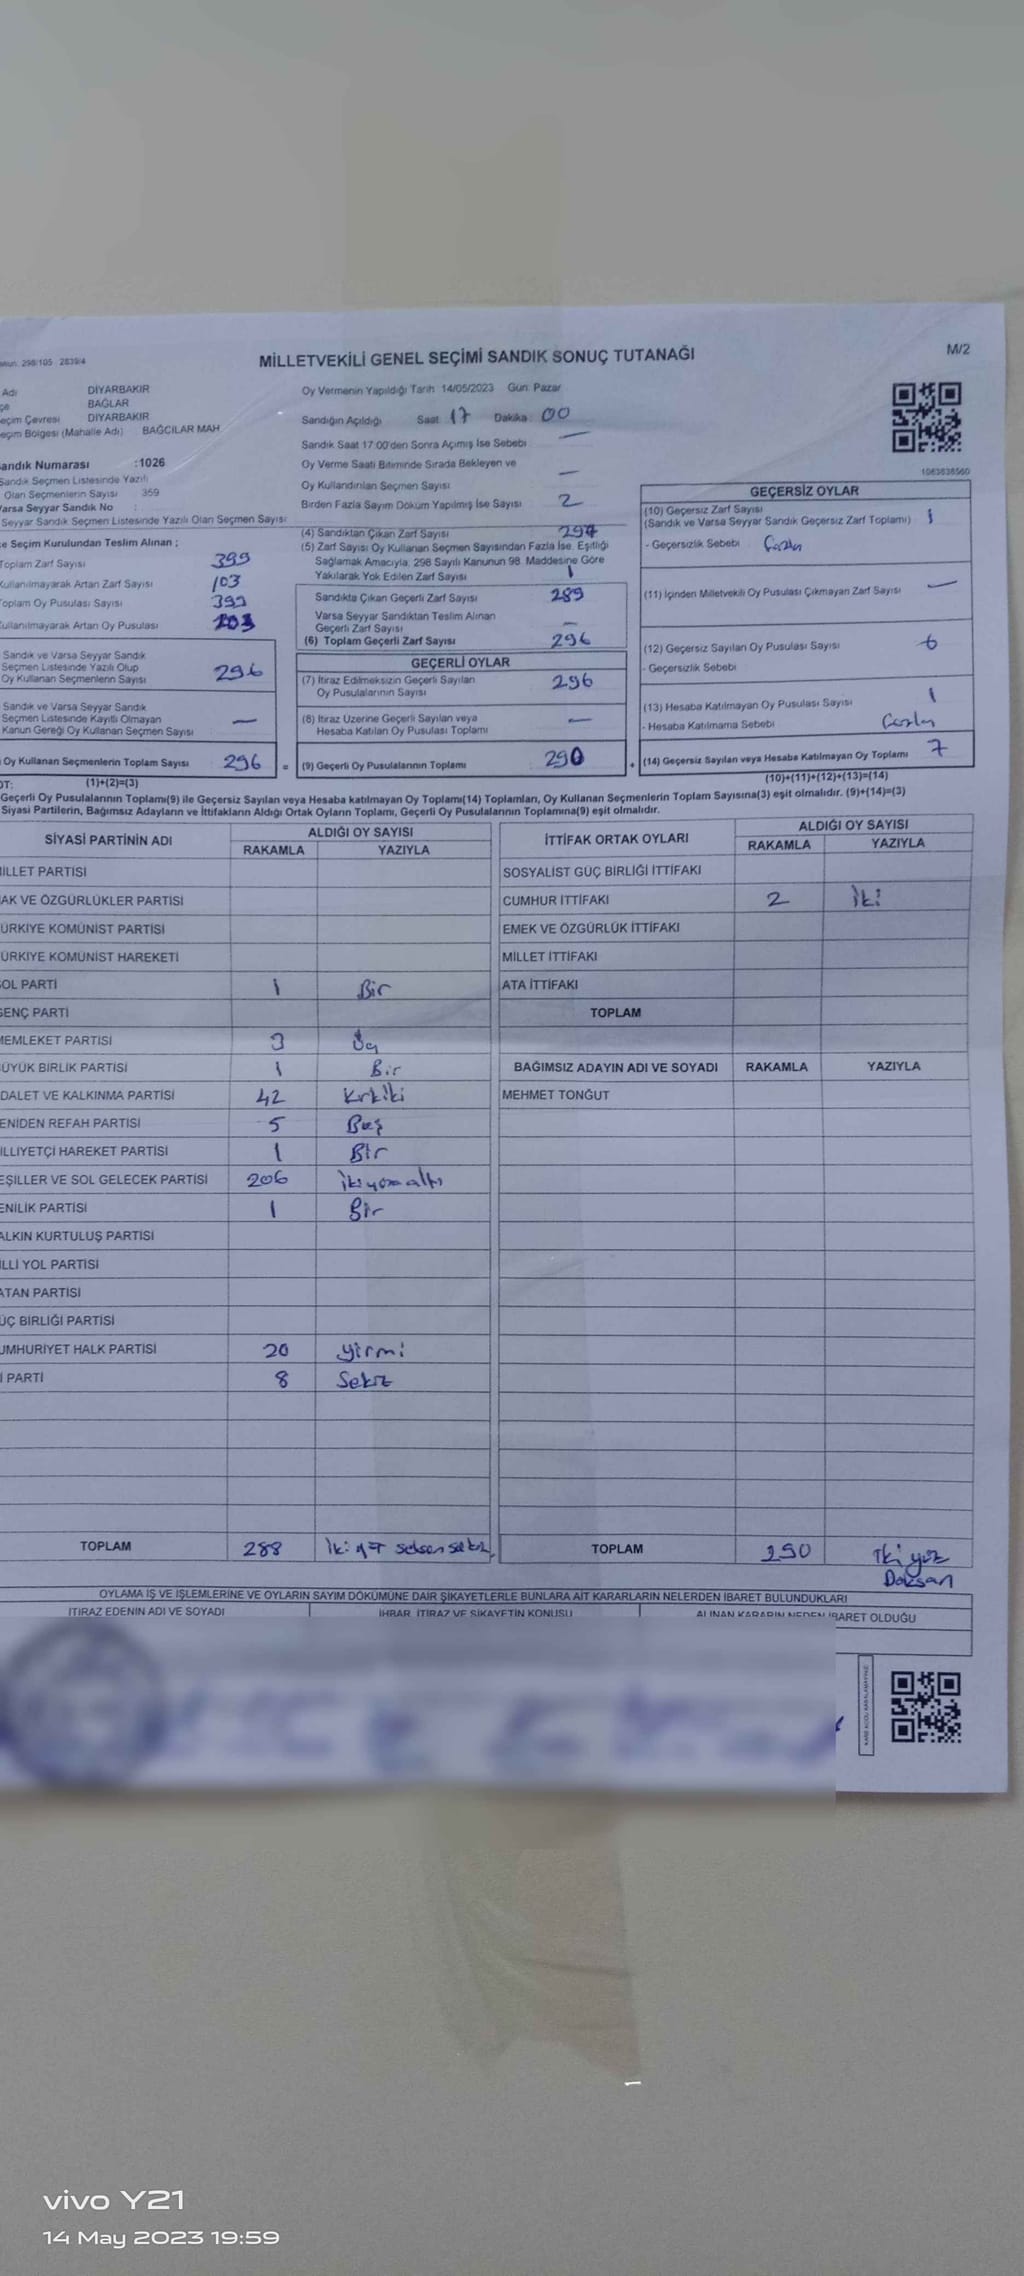 298/105 2839/4
MİLLETVEKİLİ GENEL SEÇİMİ SANDIK SONUÇ TUTANAĞI
M/2
Adı DİYARBAKIR
BAĞLAR
eçim Çevresi DİYARBAKIR
eçim Bölgesi (Mahalle Adı) BAĞCILAR MAH
andık Numarası :1026
Sandık Seçmen Listesinde Yazılı
Olan Seçmenlerin Sayısı 359
Varsa Seyyar Sandık No :
Seyyar Sandık Seçmen Listesinde Yazılı Olan Seçmen Sayısı
e Seçim Kurulundan Teslim Alınan ;
Toplam Zarf Sayısı 399
Kullanılmayarak Artan Zarf Sayısı 103
Toplam Oy Pusulası Sayısı 399
Kullanılmayarak Artan Oy Pusulası 103
Sandık ve Varsa Seyyar Sandık
Seçmen Listesinde Yazılı Olup
Oy Kullanan Seçmenlerin Sayısı 296
Sandık ve Varsa Seyyar Sandık
Seçmen Listesinde Kayıtlı Olmayan
Kanun Gereği Oy Kullanan Seçmen Sayısı —
Oy Kullanan Seçmenlerin Toplam Sayısı 296 =
Oy Vermenin Yapıldığı Tarih 14/05/2023 Gün: Pazar
Sandığın Açıldığı Saat 17 Dakika : 00
Sandık Saat 17:00'den Sonra Açımış İse Sebebi —
Oy Verme Saati Bitiminde Sırada Bekleyen ve
Oy Kullandırılan Seçmen Sayısı —
Birden Fazla Sayım Döküm Yapılmış İse Sayısı 2
(4) Sandıktan Çıkan Zarf Sayısı 297
(5) Zarf Sayısı Oy Kullanan Seçmen Sayısından Fazla İse, Eşitliği
Sağlamak Amacıyla, 298 Sayılı Kanunun 98. Maddesine Göre
Yakılarak Yok Edilen Zarf Sayısı 1
Sandıkta Çıkan Geçerli Zarf Sayısı 289
Varsa Seyyar Sandıktan Teslim Alınan
Geçerli Zarf Sayısı —
(6) Toplam Geçerli Zarf Sayısı 296
GEÇERLİ OYLAR
(7) İtiraz Edilmeksizin Geçerli Sayılan
Oy Pusulalarının Sayısı 296
(8) İtiraz Üzerine Geçerli Sayılan veya
Hesaba Katılan Oy Pusulası Toplamı —
(9) Geçerli Oy Pusulalarının Toplamı 290 +
1063638560
GEÇERSİZ OYLAR
(10) Geçersiz Zarf Sayısı
(Sandık ve Varsa Seyyar Sandık Geçersiz Zarf Toplamı) 1
- Geçersizlik Sebebi
(11) İçinden Milletvekili Oy Pusulası Çıkmayan Zarf Sayısı —
(12) Geçersiz Sayılan Oy Pusulası Sayısı 6
- Geçersizlik Sebebi
(13) Hesaba Katılmayan Oy Pusulası Sayısı 1
- Hesaba Katılmama Sebebi
(14) Geçersiz Sayılan veya Hesaba Katılmayan Oy Toplamı 7
OT: (1)+(2)=(3)
(10)+(11)+(12)+(13)=(14)
Geçerli Oy Pusulalarının Toplamı(9) ile Geçersiz Sayılan veya Hesaba katılmayan Oy Toplamı(14) Toplamları, Oy Kullanan Seçmenlerin Toplam Sayısına(3) eşit olmalıdır. (9)+(14)=(3)
Siyasi Partilerin, Bağımsız Adayların ve İttifakların Aldığı Ortak Oyların Toplamı, Geçerli Oy Pusulalarının Toplamına(9) eşit olmalıdır.
SİYASİ PARTİNİN ADI ALDIĞI OY SAYISI
RAKAMLA YAZIYLA
İLLET PARTİSİ
AK VE ÖZGÜRLÜKLER PARTİSİ
ÜRKİYE KOMÜNİST PARTİSİ
ÜRKİYE KOMÜNİST HAREKETİ
OL PARTİ 1 Bir
GENÇ PARTİ
MEMLEKET PARTİSİ 3 Üç
ÜYÜK BİRLİK PARTİSİ 1 Bir
DALET VE KALKINMA PARTİSİ 42 Kırkiki
ENİDEN REFAH PARTİSİ 5 Beş
İLLİYETÇİ HAREKET PARTİSİ 1 Bir
EŞİLLER VE SOL GELECEK PARTİSİ 206 ikiyüzaltı
ENİLİK PARTİSİ 1 Bir
ALKIN KURTULUŞ PARTİSİ
İLLİ YOL PARTİSİ
ATAN PARTİSİ
ÜÇ BİRLİĞİ PARTİSİ
UMHURİYET HALK PARTİSİ 20 yirmi
İ PARTİ 8 Sekiz
TOPLAM 288 İki yüz seksen sekiz
İTTİFAK ORTAK OYLARI ALDIĞI OY SAYISI
RAKAMLA YAZIYLA
SOSYALİST GÜÇ BİRLİĞİ İTTİFAKI
CUMHUR İTTİFAKI 2 İki
EMEK VE ÖZGÜRLÜK İTTİFAKI
MİLLET İTTİFAKI
ATA İTTİFAKI
TOPLAM
BAĞIMSIZ ADAYIN ADI VE SOYADI RAKAMLA YAZIYLA
MEHMET TONĞUT
TOPLAM 290 İki yüz
Doksan
OYLAMA İŞ VE İŞLEMLERİNE VE OYLARIN SAYIM DÖKÜMÜNE DAİR ŞİKAYETLERLE BUNLARA AİT KARARLARIN NELERDEN İBARET BULUNDUKLARI
İTİRAZ EDENİN ADI VE SOYADI İHBAR, İTİRAZ VE ŞİKAYETİN KONUSU ALINAN KARARIN NEDEN İBARET OLDUĞU
vivo Y21
14 May 2023 19:59